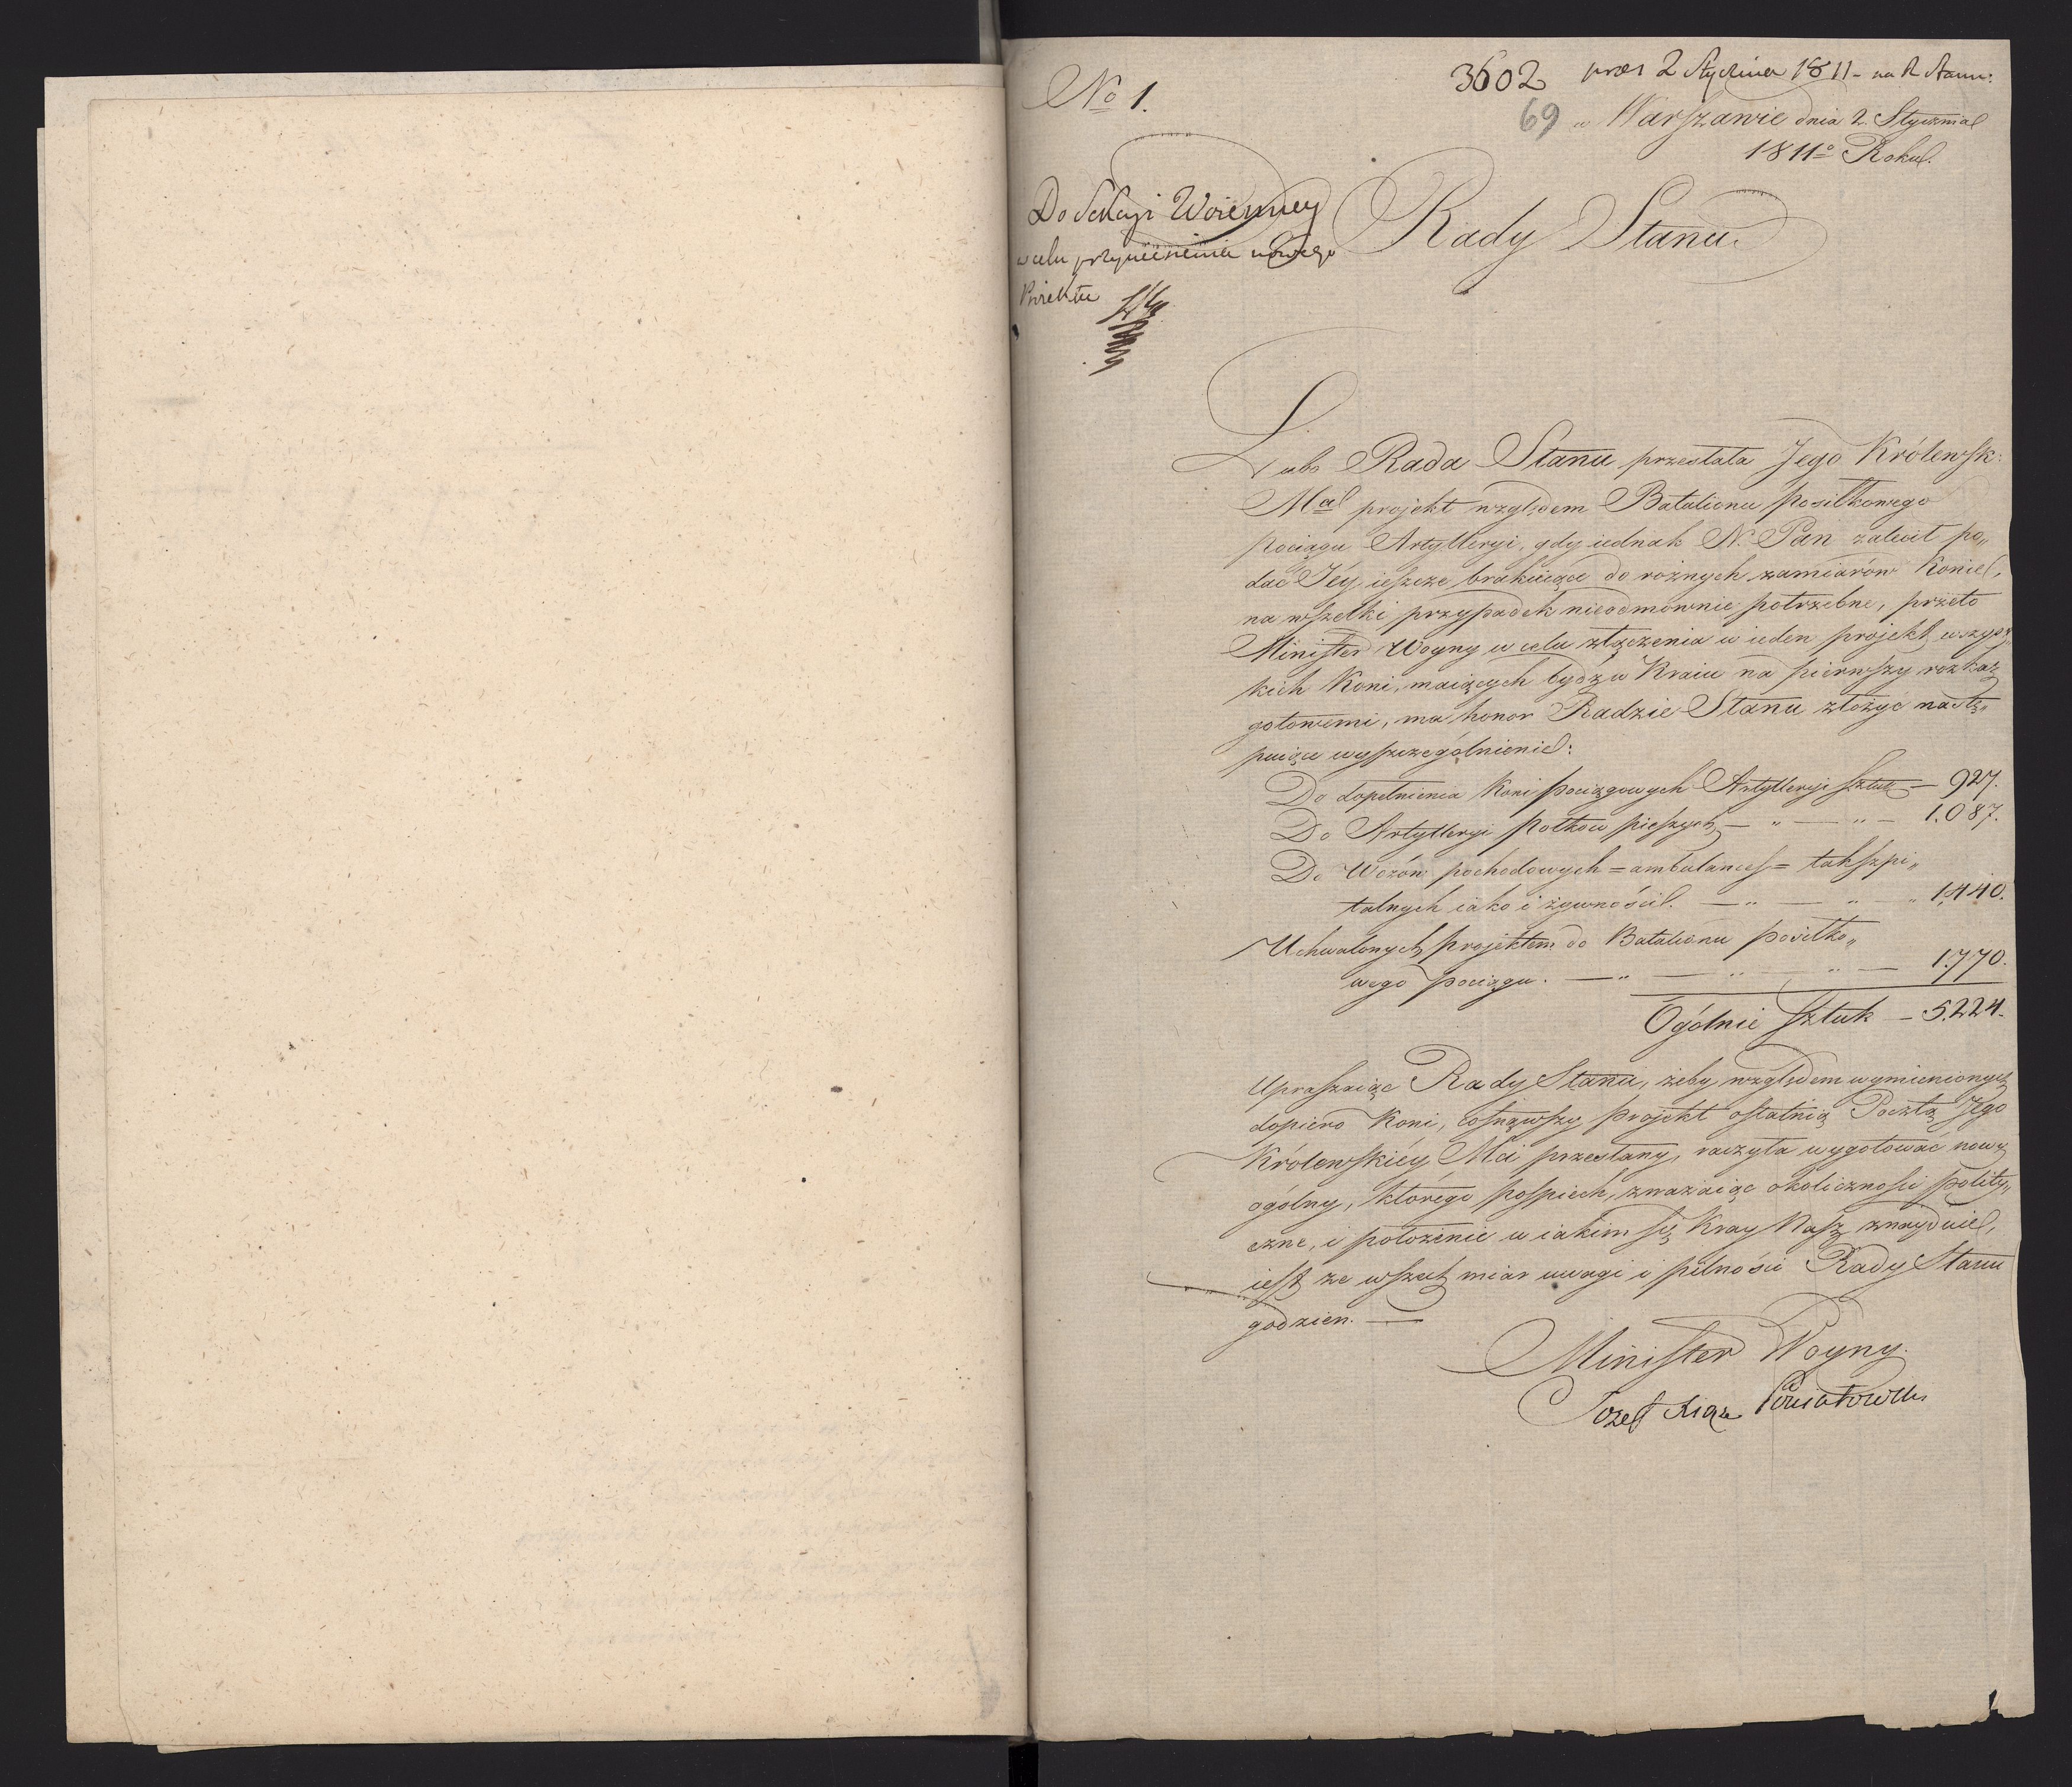 No 1.
3602 pres 2 Stycznia 1811 - na R Stanu:
69
w Warszawie dnia 2. Stycznia
1811o Roku.
Do Sekcyi Woienney
w celu przyniesienia nowego
Proiektu
Rady Stanu.
Lubo Rada Stanu przesłała Jego Królewsk:
Mci projekt względem Batalionu posiłkowego
pociągu Artylleryi, gdy iednak N. Pan zalecił po„
dać Jéy ieszcze brakuiące do rożnych zamiarów Konie,
na wszelki przypadek nieodmownie potrzebne, przeto
Minister Woyny w celu złączenia w ieden projekt wszyst
kich Koni, maiących bydź w Kraiu na pierwszy rozkaz
gotowemi, ma honor Radzie Stanu złożyć nastę„
puiące wyszczególnienie:
Do dopełnienia Koni pociągowych Artylleryi sztuk — 927.
Do Artylleryi Półkow pieszych — „ — „ — 1.087.
Do Wozów pochodowych = ambulances = tak szpi„
talnych iako i żywności. — „ — „ „ 1,440.
Uchwalonych projektem do Batalionu posiłko„
wego pociągu. — „ — „ — „ — 1.770.
Ogólnie sztuk — 5.224.
Upraszaiąc Rady Stanu, żeby względem wymienionych
dopiero Koni, cofnąwszy projekt ostatnią Pocztą Jego
Królewskiéy Mci przesłany, raczyła wygotować nowy
ogólny, którego pospiech, zważaiąc okoliczności polity„
czne, i położenie w iakim się Kray Nasz znayduie,
iest ze wszech miar uwagi i pilności Rady Stanu
godzien. —
Minister Woyny.
Jozef Xiąże Poniatowski